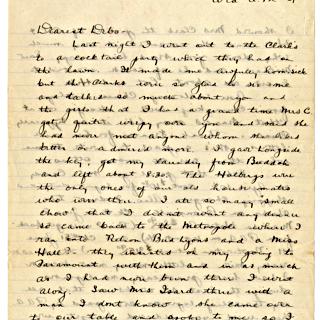 Wed a.m.
Dearest Debo:
Last night I went out to the Clark's
to a cocktail party which they had on
the lawn. It made me awfully homesick
but the Clarks were so glad to see me
and talked so much about you and
the girls that I had a grand time. Mrs C.
got quite weepy over and said she
had never met anyone whom she liked
better or admired more. I gave Longside
the key, got my laundry from
and left about 8:30. The
the only ones of our old house mates
who were there. I ate so many small
chow that I didnt want any dinner
so came back to the Metropole where I
ran into Nelson and a Miss
Hall? they insisted on my going to
Paramount with them and in as much
as I had more business there I went
along. Saw Mrs there with a
man I don't know & she came over
to our table and spoke to me, so I